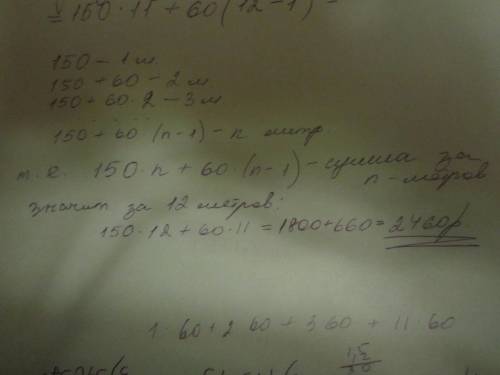 150 · 11 + 60 (12 - 1) =
150 - 1 м.
150 + 60 - 2 м
150 + 60 · 2 - 3 м.
150 + 60 (n-1) - n метр.
т.е. 150 · n + 60 · (n-1) - сумма за
n - метров
значит за 12 метров:
150 · 12 + 60 · 11 = 1800 + 660 = 2460р.
1 · 60 + 2 60 + 3 60 + 11 · 60